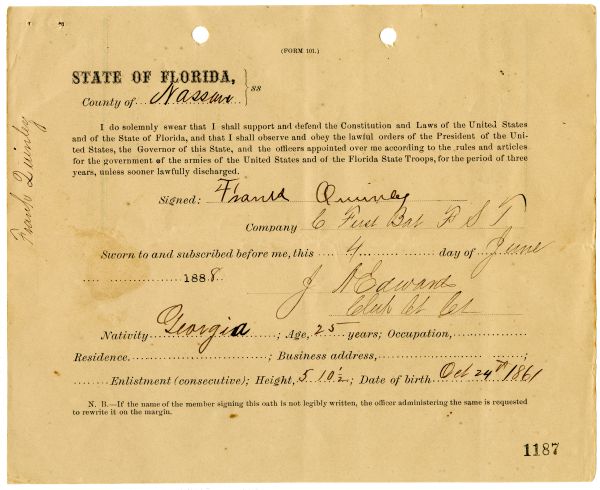 (FORM 101.)
STATE OF FLORIDA,
County of Nassau ss
I do solemnly swear that I shall support and defend the Constitution and Laws of the United States
and of the State of Florida, and that I shall observe and obey the lawful orders of the President of the Uni-
ted States, the Governor of this State, and the officers appointed over me according to the rules and articles
for the government of the armies of the United States and of the Florida State Troops, for the period of three
years, unless sooner lawfully discharged.
Signed: Frank Quinley
Company C First Bat F S T
Sworn to and subscribed before me, this 4 day of June
1888.
J Edwards
Clerk Ct Ct
Nativity Georgia; Age, 25 years; Occupation,
Residence. ; Business address, ;
Enlistment (consecutive); Height, 5 10½; Date of birth Oct 24th 1861
N. B.—If the name of the member signing this oath is not legibly written, the officer administering the same is requested
to rewrite it on the margin.
1187
Frank Quinley